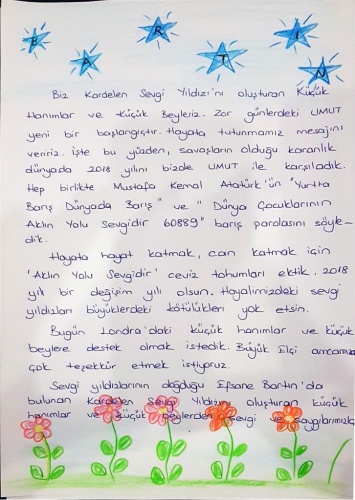 B A R T I N
Biz Kardelen Sevgi Yıldızı'nı oluşturan Küçük
Hanımlar ve Küçük Beyleriz. Zor günlerdeki UMUT
yeni bir başlangıçtır. Hayata tutunmamız mesajını
veririz. İşte bu yüzden, savaşların olduğu karanlık
dünyada 2018 yılını bizde UMUT ile karşıladık.
Hep birlikte Mustafa Kemal Atatürk'ün "Yurtta
Barış Dünyada Barış" ve "Dünya Çocuklarının
Aklın Yolu Sevgidir 60889" barış parolasını söyle-
dik.
Hayata hayat katmak, can katmak için
"Aklın Yolu Sevgidir" ceviz tohumları ektik. 2018
yılı bir değişim yılı olsun. Hayalimizdeki sevgi
yıldızları büyüklerdeki kötülükleri yok etsin.
Bugün Londra'daki küçük hanımlar ve küçük
beylere destek olmak istedik. Büyük Elçi amcamıza
çok teşekkür etmek istiyoruz.
Sevgi yıldızlarının doğduğu Efsane Bartın'da
bulunan Kardelen Sevgi Yıldızını oluşturan küçük
hanımlar ve küçük beylerden sevgi ve saygılarımızla